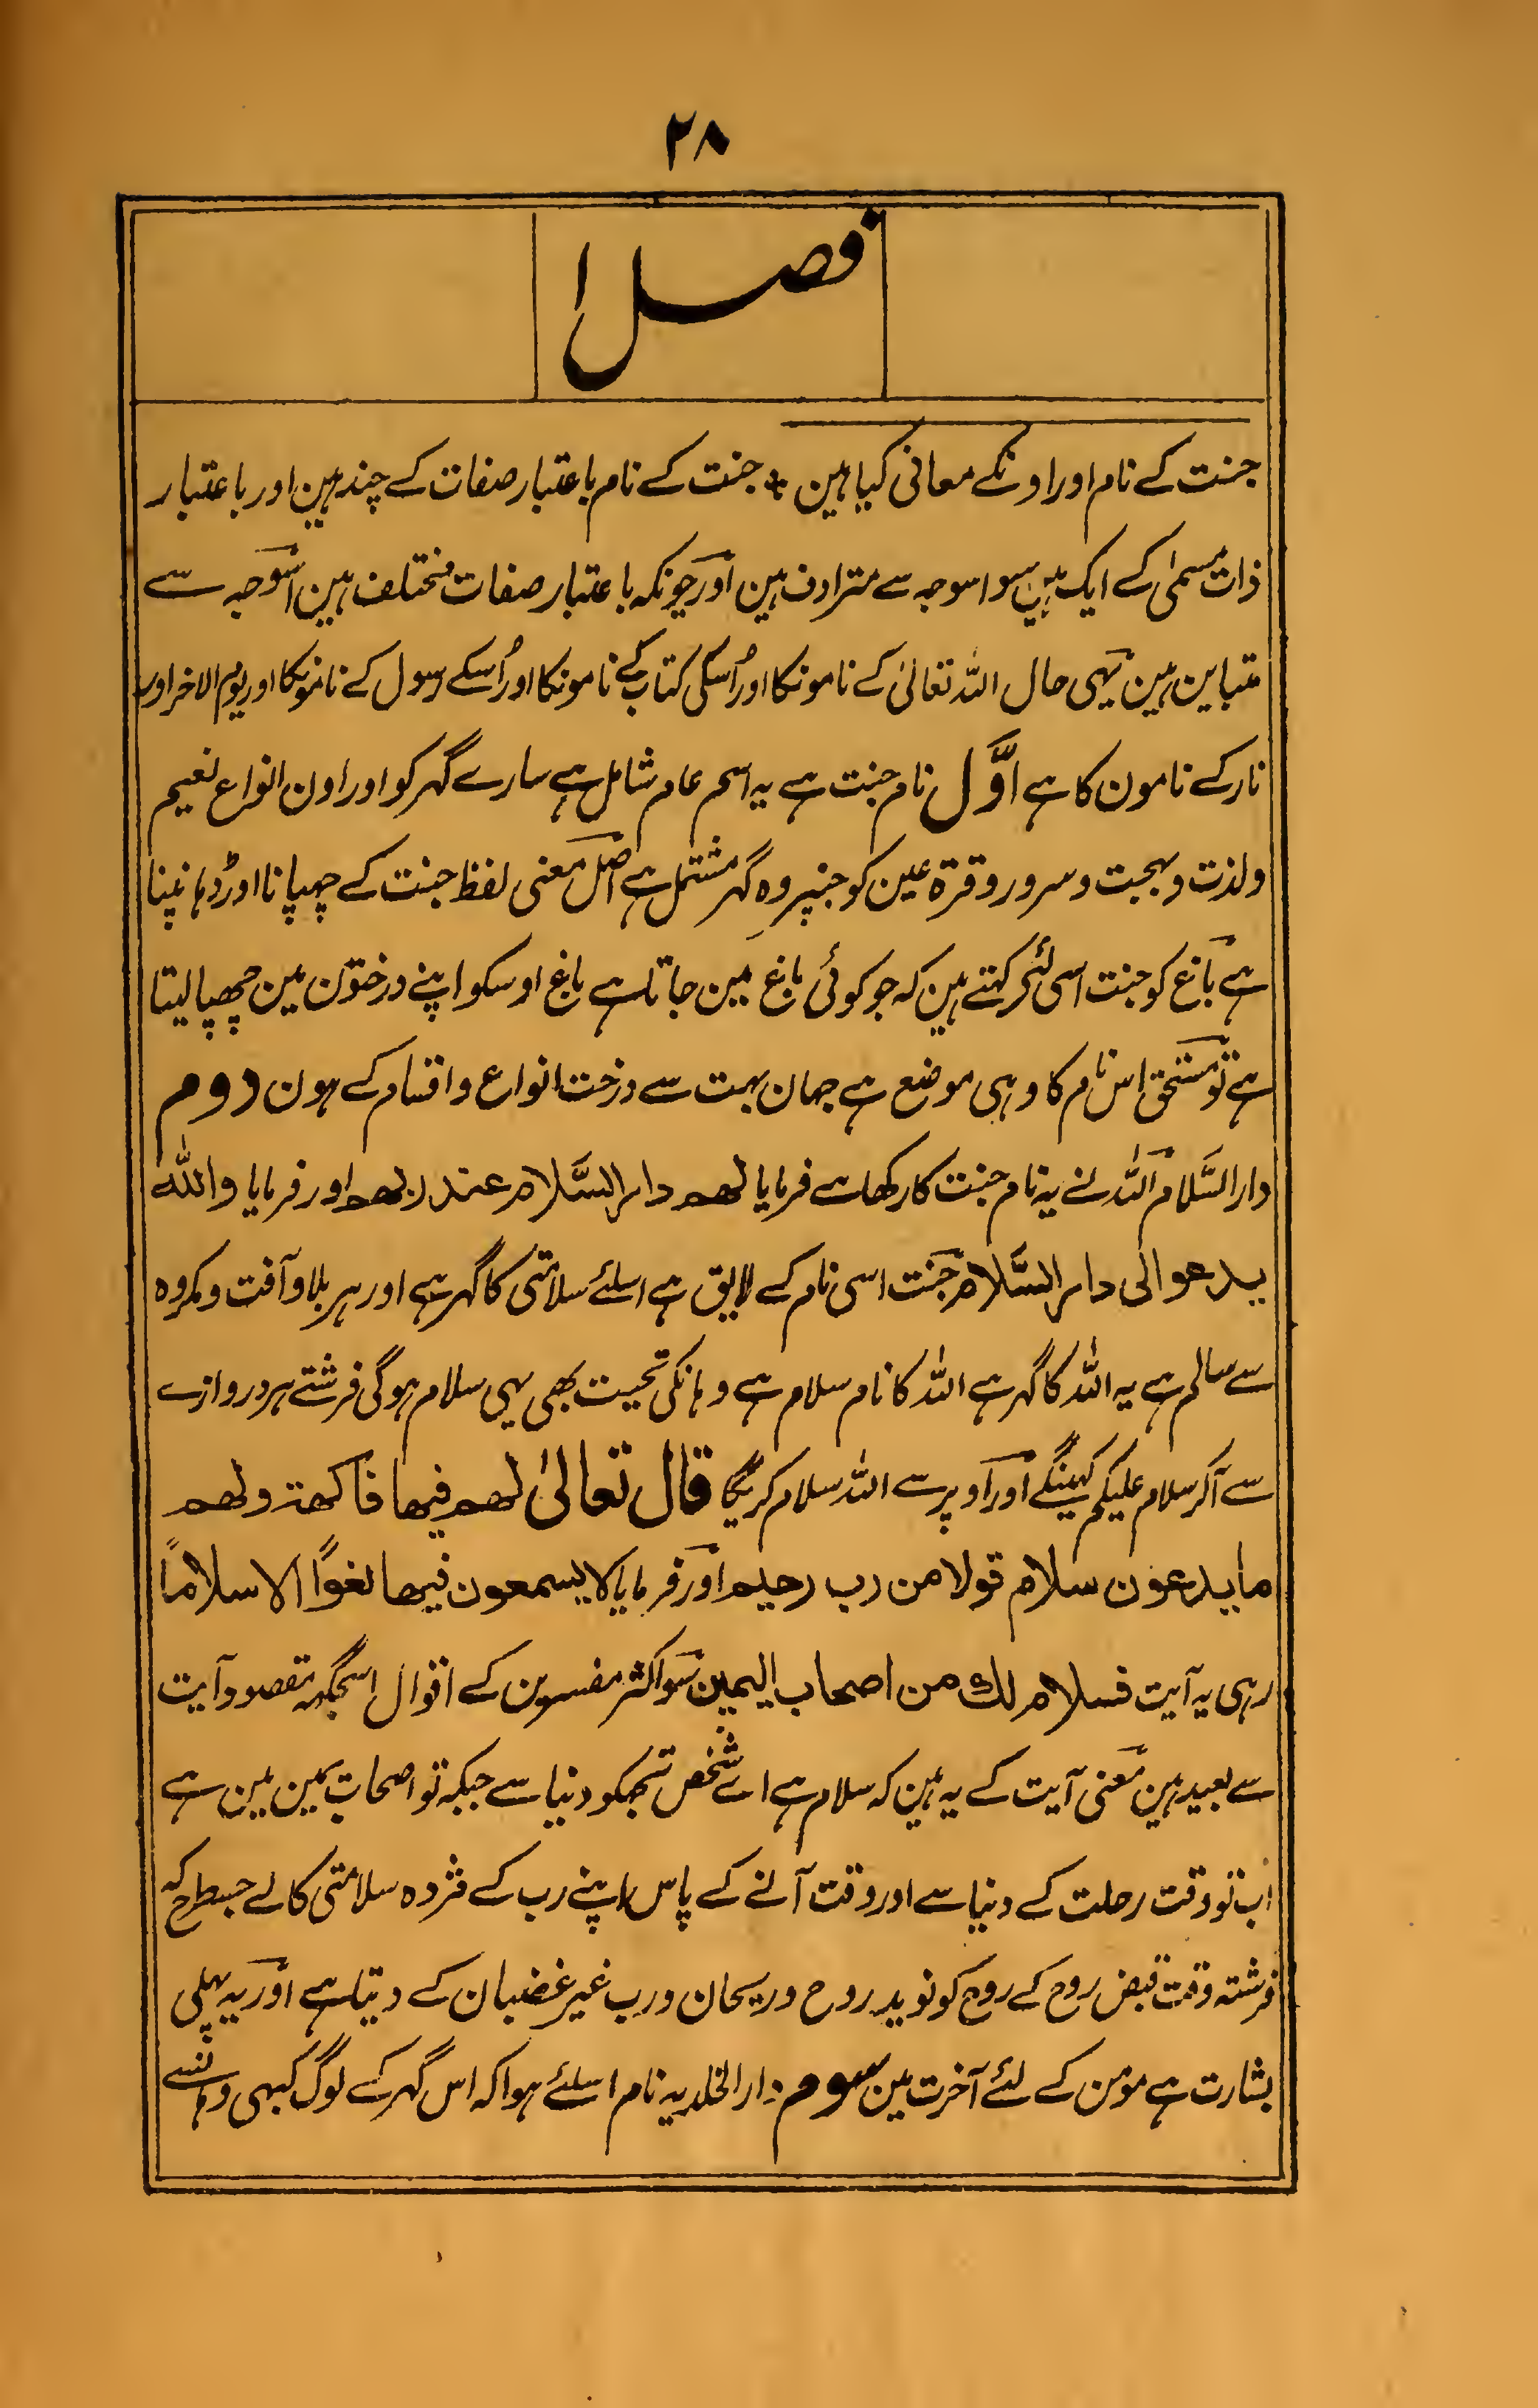 ۲۸
فصل ۱
جنت کے نام اور اونکے معانی کیا ہین + جنت کے نام باعتبار صفات کے چند ہین اور باعتبار
ذات مسمیٰ کے ایک ہین سو اسوجہ سے مترادف ہین اور چونکہ باعتبار صفات مختلف ہین اسوجہ سے
متباین ہین یہی حال اللہ تعالیٰ کے نامونکا اور اُسکی کتاب کے نامونکا اور اُسکے رسول کے نامونکا اور یوم الاخر اور
نار کے نامون کا ہے اوّل نام جنت ہے یہ اسم عام شامل ہے سارے گہر کو اور اون انواع نعیم
ولذت وبہجت وسرور وقرۃ عین کو جنپر وہ گہر مشتمل ہے اصل معنی لفظ جنت کے چہپانا اور ڈہانپنا
ہے باغ کو جنت اسی لئے کہتے ہین کہ جو کوئی باغ مین جاتا ہے باغ اوسکو اپنے درختون مین چھپا لیتا
ہے تو مستحق اس نام کا وہی موضع ہے جہان بہت سے درخت انواع واقسام کے ہون دوم
دار السَّلام اللہ نے یہ نام جنت کا رکھا ہے فرمایا لهم دار السَّلام عند ربهم اور فرمایا والله
يدعو الى دار السَّلام جنت اسی نام کے لایق ہے اسلئے سلامتی کا گہر ہے اور ہر بلا وآفت ومکروہ
سے سالم ہے یہ اللہ کا گہر ہے اللہ کا نام سلام ہے وہانکی تحیت بھی یہی سلام ہوگی فرشتے ہر دروازے
سے آکر سلام علیکم کہینگے اور اوپر سے اللہ سلام کریگا قال تعالیٰ لهم فيها فاكهة ولهم
ما يدعون سلام قولا من رب رحيم اور فرمایا لا يسمعون فيها لغوًا الا سلامًا
رہی یہ آیت فسلام لك من اصحاب اليمين سو اکثر مفسرین کے اقوال اسجگہہ مقصود آیت
سے بعید ہین معنی آیت کے یہ ہین کہ سلام ہے اے شخص تجہکو دنیا سے جبکہ تو اصحاب یمین مین ہے
اب تو وقت رحلت کے دنیا سے اور وقت آنے کے پاس اپنے رب کے مژدہ سلامتی کا لے جسطرح کہ
فرشتہ وقت قبض روح کے روح کو نوید روح وریحان ورب غیر غضبان کے دیتا ہے اور یہ پہلی
بشارت ہے مومن کے لئے آخرت مین سوم دار الخلد یہ نام اسلئے ہوا کہ اس گہر کے لوگ کبہی وہانسے